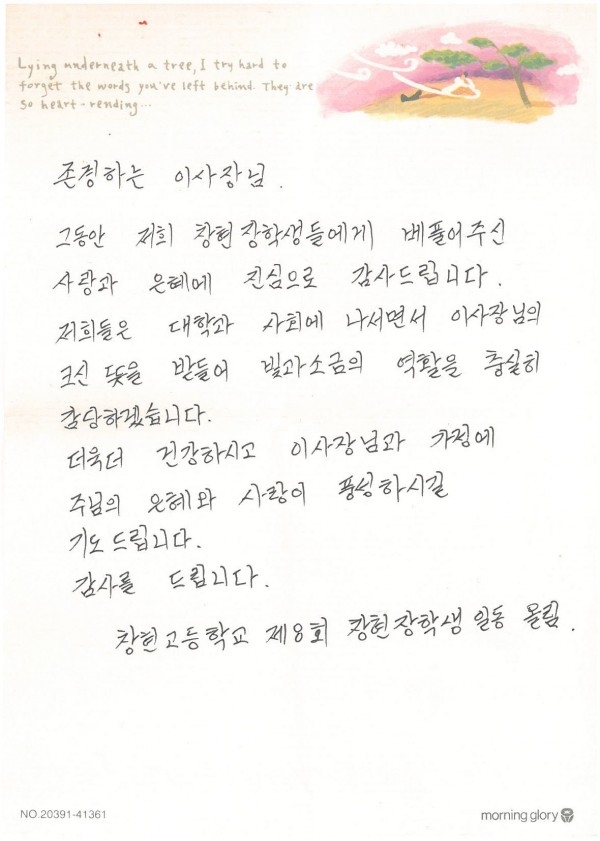 Lying underneath a tree, I try hard to
forget the words you've left behind. They are
so heart-rending...
존경하는 이사장님.
그동안 저희 창현장학생들에게 베풀어주신
사랑과 은혜에 진심으로 감사드립니다.
저희들은 대학과 사회에 나서면서 이사장님의
크신 뜻을 받들어 빛과소금의 역할을 충실히
감당하겠습니다.
더욱더 건강하시고 이사장님과 가정에
주님의 은혜와 사랑이 풍성하시길
기도드립니다.
감사를 드립니다.
창현고등학교 제8회 창현장학생 일동 올림.
NO.20391-41361
morning glory